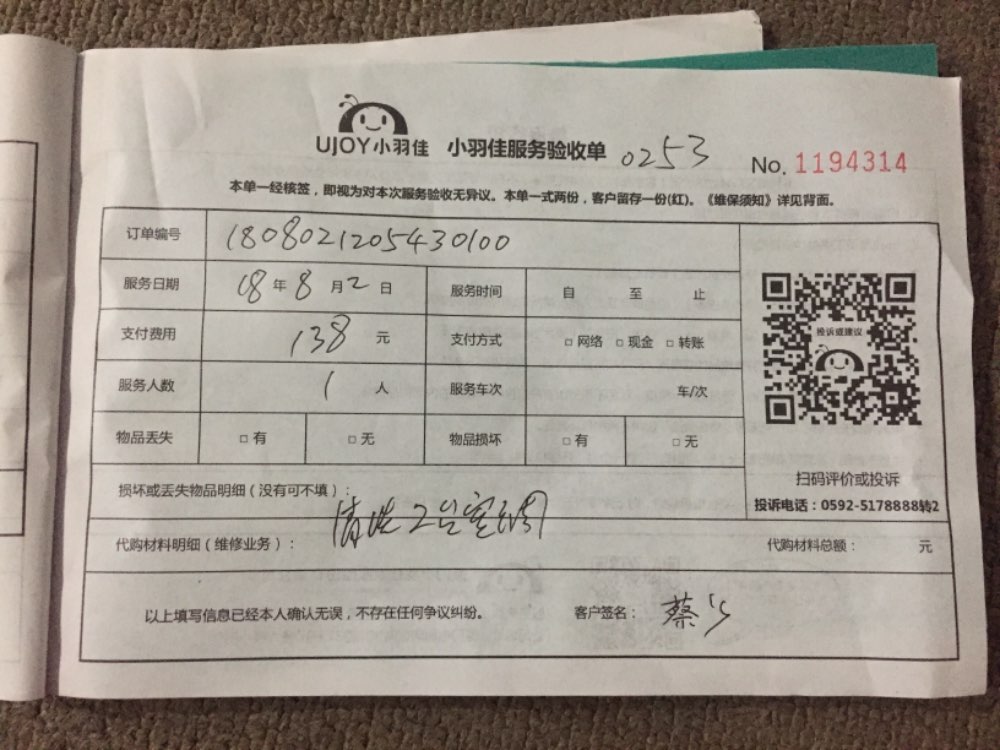 UJOY小羽佳 小羽佳服务验收单 0253 No. 1194314
本单一经核签，即视为对本次服务验收无异议。本单一式两份，客户留存一份(红)。《维保须知》详见背面。
订单编号 1808021205430100
服务日期 18年8月2日 服务时间 自 至 止
投诉或建议
支付费用 138元 支付方式 □网络 □现金 □转账
服务人数 1人 服务车次 车/次
物品丢失 □有 □无 物品损坏 □有 □无
扫码评价或投诉
损坏或丢失物品明细（没有可不填）：
投诉电话：0592-5178888转2
清洗2台空调
代购材料明细（维修业务）： 代购材料总额： 元
以上填写信息已经本人确认无误，不存在任何争议纠纷。 客户签名： 蔡